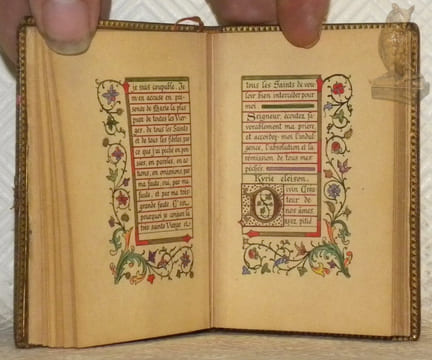 je suis coupable. Je
m'en accuse en pré-
sence de Marie la plus
pure de toutes les Vier-
ges, de tous les Saints
et de tous les fidèles, par-
ce que j'ai péché en pen-
sées, en paroles, en ac-
tions, en omissions, par
ma faute, oui, par ma
faute, et par ma très
grande faute. C'est
pourquoi je conjure la
très sainte Vierge et
tous les Saints de vou-
loir bien intercéder pour
moi.
Seigneur, écoutez fa-
vorablement ma prière,
et accordez-moi l'indul-
gence, l'absolution et la
rémission de tous mes
péchés.
Kyrie eleison.
Divin Créa
teur de
nos âmes
ayez pitié